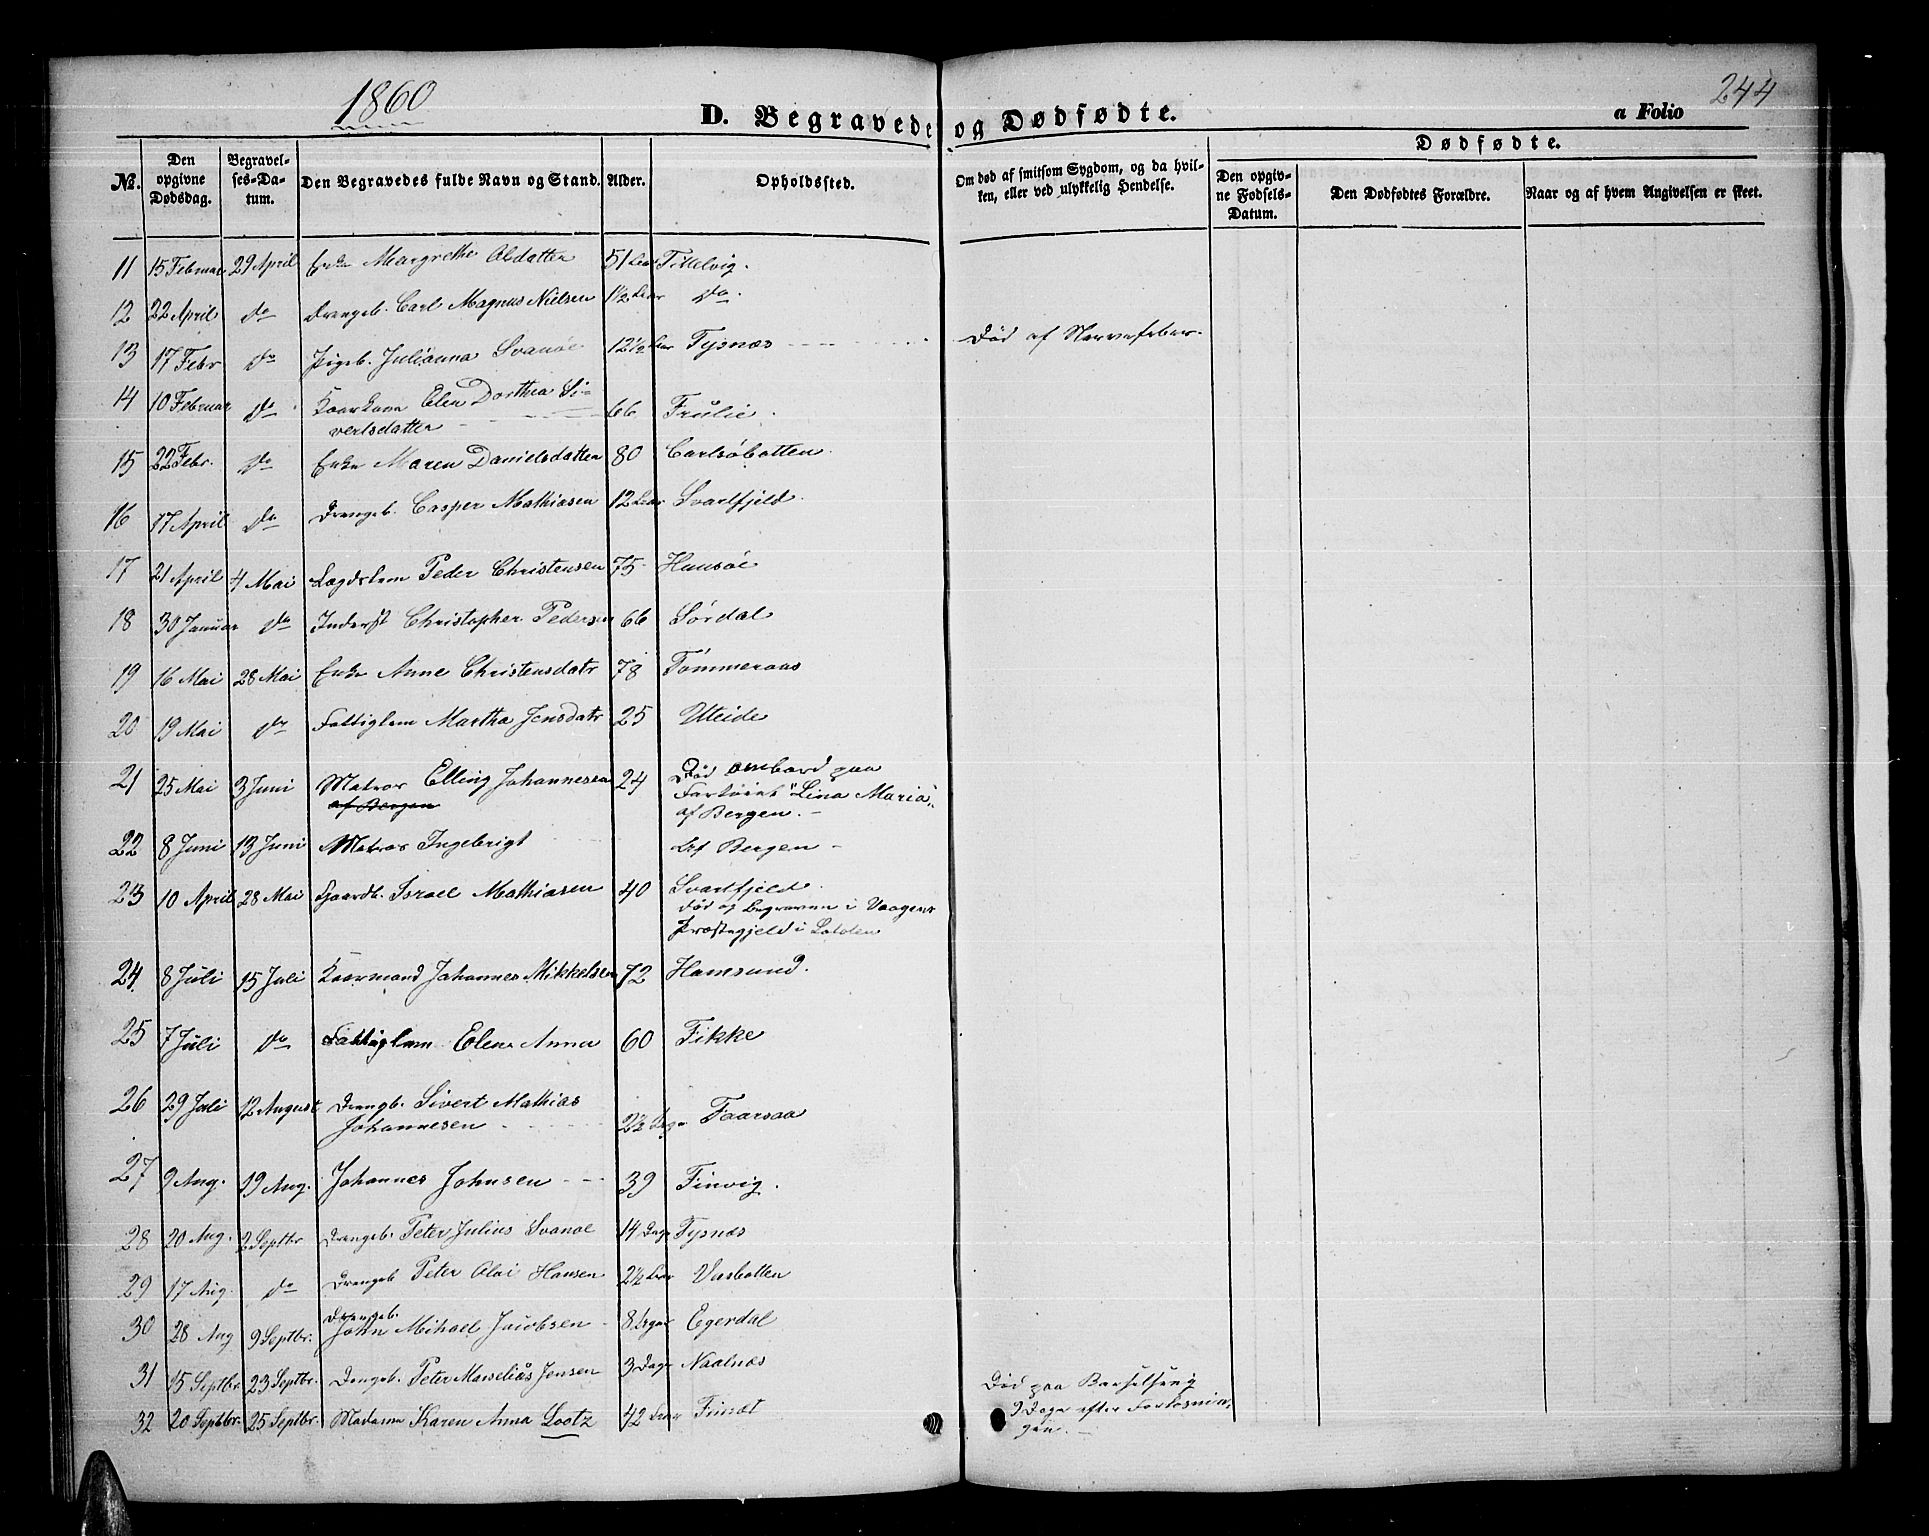 1860
244
D. Begravede og Dødfødte.
a Folio
No.
Den opgivne Dødsdag.
Begravelses-Datum.
Den Begravedes fulde Navn og Stand.
Alder.
Opholdssted.
Om død af smitsom Sygdom, og da hvilken, eller ved ulykkelig Hendelse.
Dødfødte.
Den opgivne Fødsels-Datum.
Den Dødfødtes Forældre.
Naar og af hvem Angivelsen er skeet.
11 15 Februar 29 April Enke Margrethe Olsdatter 51 Tillelvig.
12 22 April do Drengeb. Carl Magnus Nielsen 1½ do.
13 17 Febr do Pigeb. Julianna Svanøe 12½ Tysnæs Død af Nervefeber.
14 10 Februar do Kaarkone Elen Dorthea Si-
vertsdatter 66 Frulie.
15 22 Febr. do Enke Maren Danielsdatter 80 Carlsöbotten.
16 17 April do Drengeb. Casper Mathiasen 12 Svartfjeld.
17 21 April 4 Mai Lægdslem Peder Christensen 75 Hunsøe
18 30 Januar do Inderst Christopher Pedersen 66 Sördal
19 16 Mai 28 Mai Enke Anne Christensdatr 78 Tömmeraas
20 19 Mai do Fattiglem Martha Jensdatr 25 Uteide
21 25 Mai 3 Juni Matros Elling Johannesen 24 Død ombord paa
af Bergen Fartöiet "Lina Maria"
af Bergen. -
22 8 Juni 13 Juni Matros Ingebrigt af Bergen -
23 10 April 28 Mai Gaardb. Israel Mathiasen 40 Svartfjeld.
død og begraven i Vaagens
Præstegjeld i Lofoten
24. 8 Juli 15 Juli Kaarmand Johannes Mikkelsen 72 Hamsund.
25 7 Juli do Fattiglem Elen Anna 60 Fikke
26 29 Juli 12 August Drengb. Sivert Mathias
Johannesen 2½ Faarsaa
27 9 Aug. 19 Aug. Johannes Johnsen 39 Finvig.
28 20 Aug. 2 Septbr Drengeb. Peter Julius Svanøe 14 Dage Tysnæs
29 17 Aug. do Drengeb Peter Olai Hansen 2½ Vasbotten
Drengeb.
30 28 Aug 9 Septbr. John Mihael Jacobsen 8 Egerdal
31 15 Septbr 23 Septbr. Drengeb. Peter Marselius Jensen 3 Dage Naalnæs
32 20 Septbr. 25 Septbr. Madame Karen Anna Lootz 42 Finsæt Død paa Barselseng
9 Dage efter Forløsnin-
gen. -